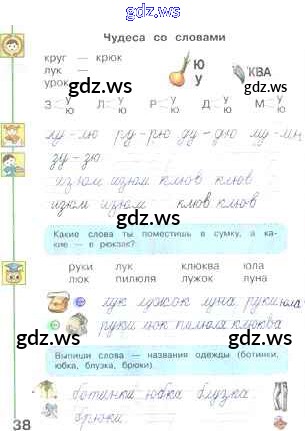 gdz.ws
Чудеса со словами
круг — крюк
лук —
урок
Ю
У
КВА
З у ю Л у ю Р у ю Д у ю М у ю
gdz.ws gdz.ws
лу-лю ру-рю ду-дю му-мю
зу-зю
изюм изюм клюв клюв
изюм изюм клюв клюв
Какие слова ты поместишь в сумку, а ка-
кие — в рюкзак?
gdz.ws gdz.ws
руки лук клюква юла
люк пилюля лужок луна
лук лужок луна руки юла
руки люк пилюля клюква
gdz.ws gdz.ws
Выпиши слова — названия одежды (ботинки,
юбка, блузка, брюки).
ботинки юбка блузка
брюки
38
gdz.ws